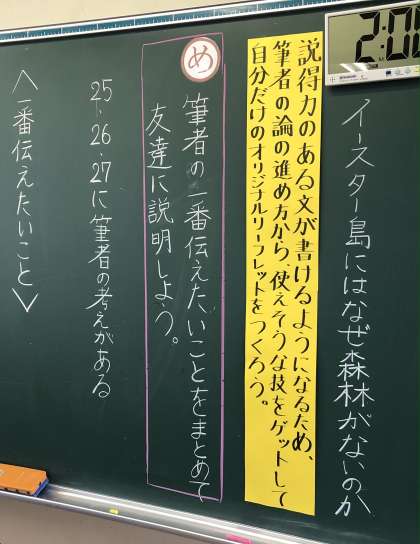 イースター島にはなぜ森林がないのか
説得力のある文が書けるようになるため、
筆者の論の進め方から、使えそうな技をゲットして
自分だけのオリジナルリーフレットをつくろう。
め
筆者の一番伝えたいことをまとめて
友達に説明しよう。
25・26・27に筆者の考えがある
＜一番伝えたいこと＞